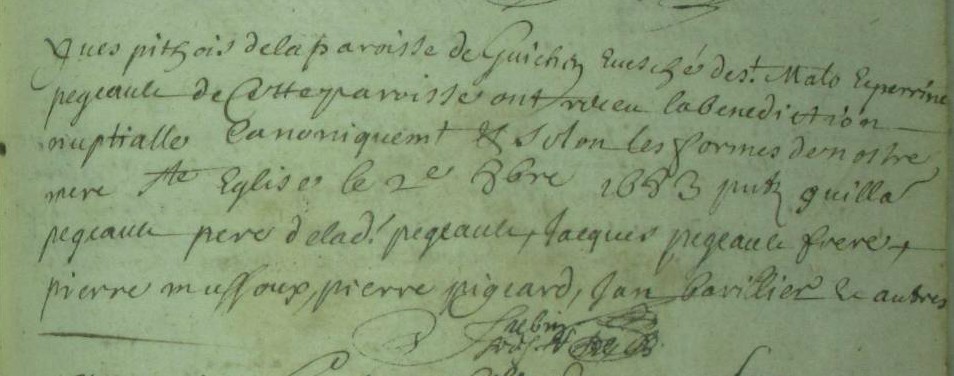 Yues pithois de la paroisse de Guichen Euesché de st. Malo Et perrine
pegeault de Cette paroisse ont receu la benediction
nuptialle Canoniquemt & selon les formes de nostre
mere ste Eglise le 2e 1683 guilla
pegeault pere de lad. pegeault, Jacques pegeault frere,
pierre mussoux, pierre pigeard, Jan barillier & autres